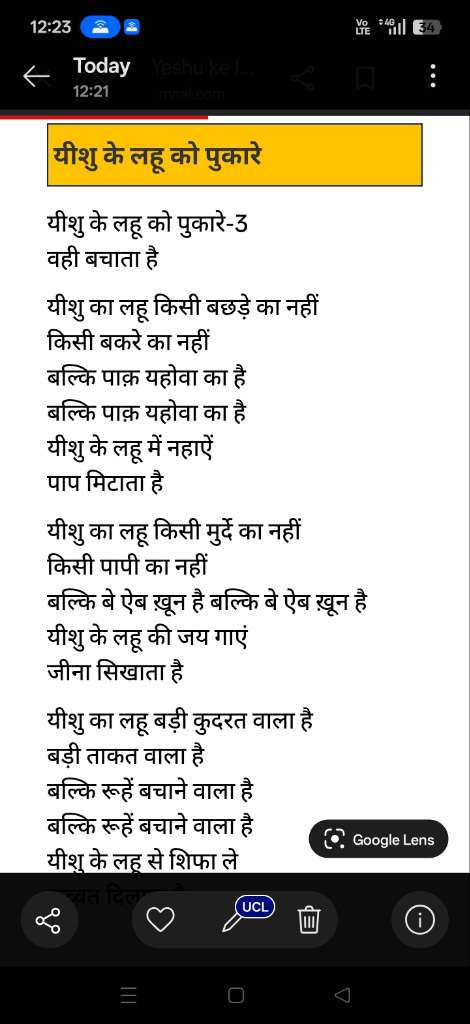 12:23
Vo LTE 4G 34
Today
12:21
Yeshu ke l...
यीशु के लहू को पुकारे
यीशु के लहू को पुकारे-3
वही बचाता है
यीशु का लहू किसी बछड़े का नहीं
किसी बकरे का नहीं
बल्कि पाक़ यहोवा का है
बल्कि पाक़ यहोवा का है
यीशु के लहू में नहाऐं
पाप मिटाता है
यीशु का लहू किसी मुर्दे का नहीं
किसी पापी का नहीं
बल्कि बे ऐब ख़ून है बल्कि बे ऐब ख़ून है
यीशु के लहू की जय गाएं
जीना सिखाता है
यीशु का लहू बड़ी कुदरत वाला है
बड़ी ताकत वाला है
बल्कि रूहें बचाने वाला है
बल्कि रूहें बचाने वाला है
Google Lens
यीशु के लहू से शिफा ले
UCL